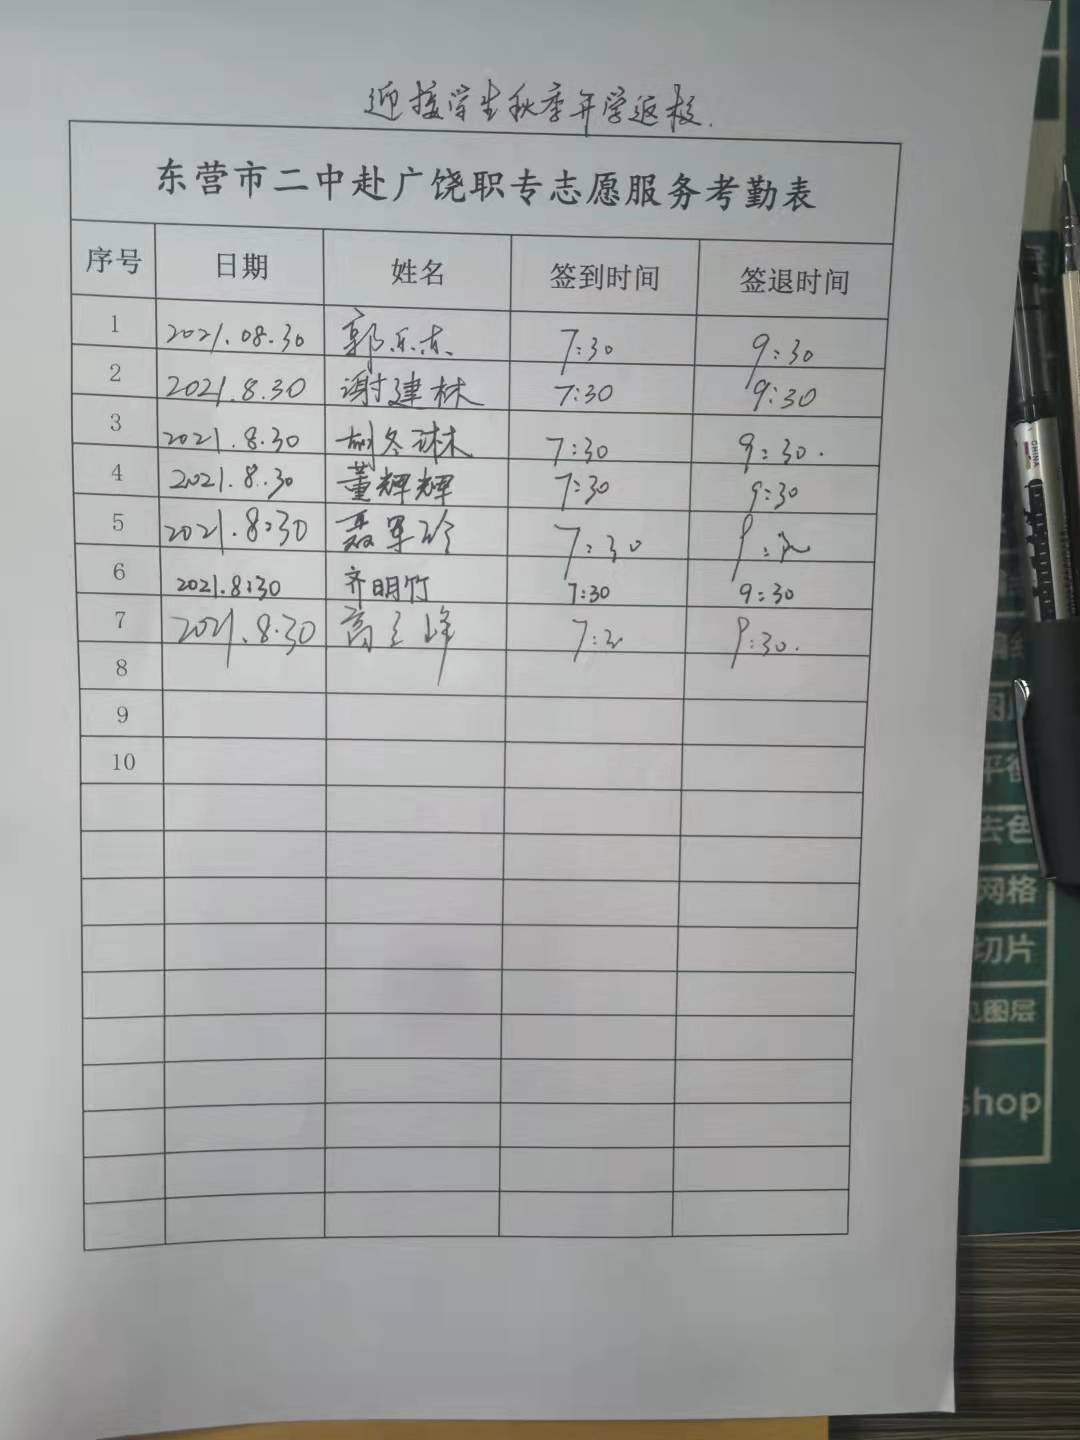 迎接学生秋季开学返校.
东营市二中赴广饶职专志愿服务考勤表
序号 日期 姓名 签到时间 签退时间
1 2021.08.30 郭乐东 7:30 9:30
2 2021.8.30 谢建林 7:30 9:30
3 2021.8.30 胡冬琳 7:30 9:30.
4 2021.8.30 董辉辉 7:30 9:30
5 2021.8:30 聂军玲 7:30 9:30
6 2021.8:30 齐明竹 7:30 9:30
7 2021.8.30 高立峰 9:30.
8
9
10
CHINA
去色
网格
切片
图层
shop